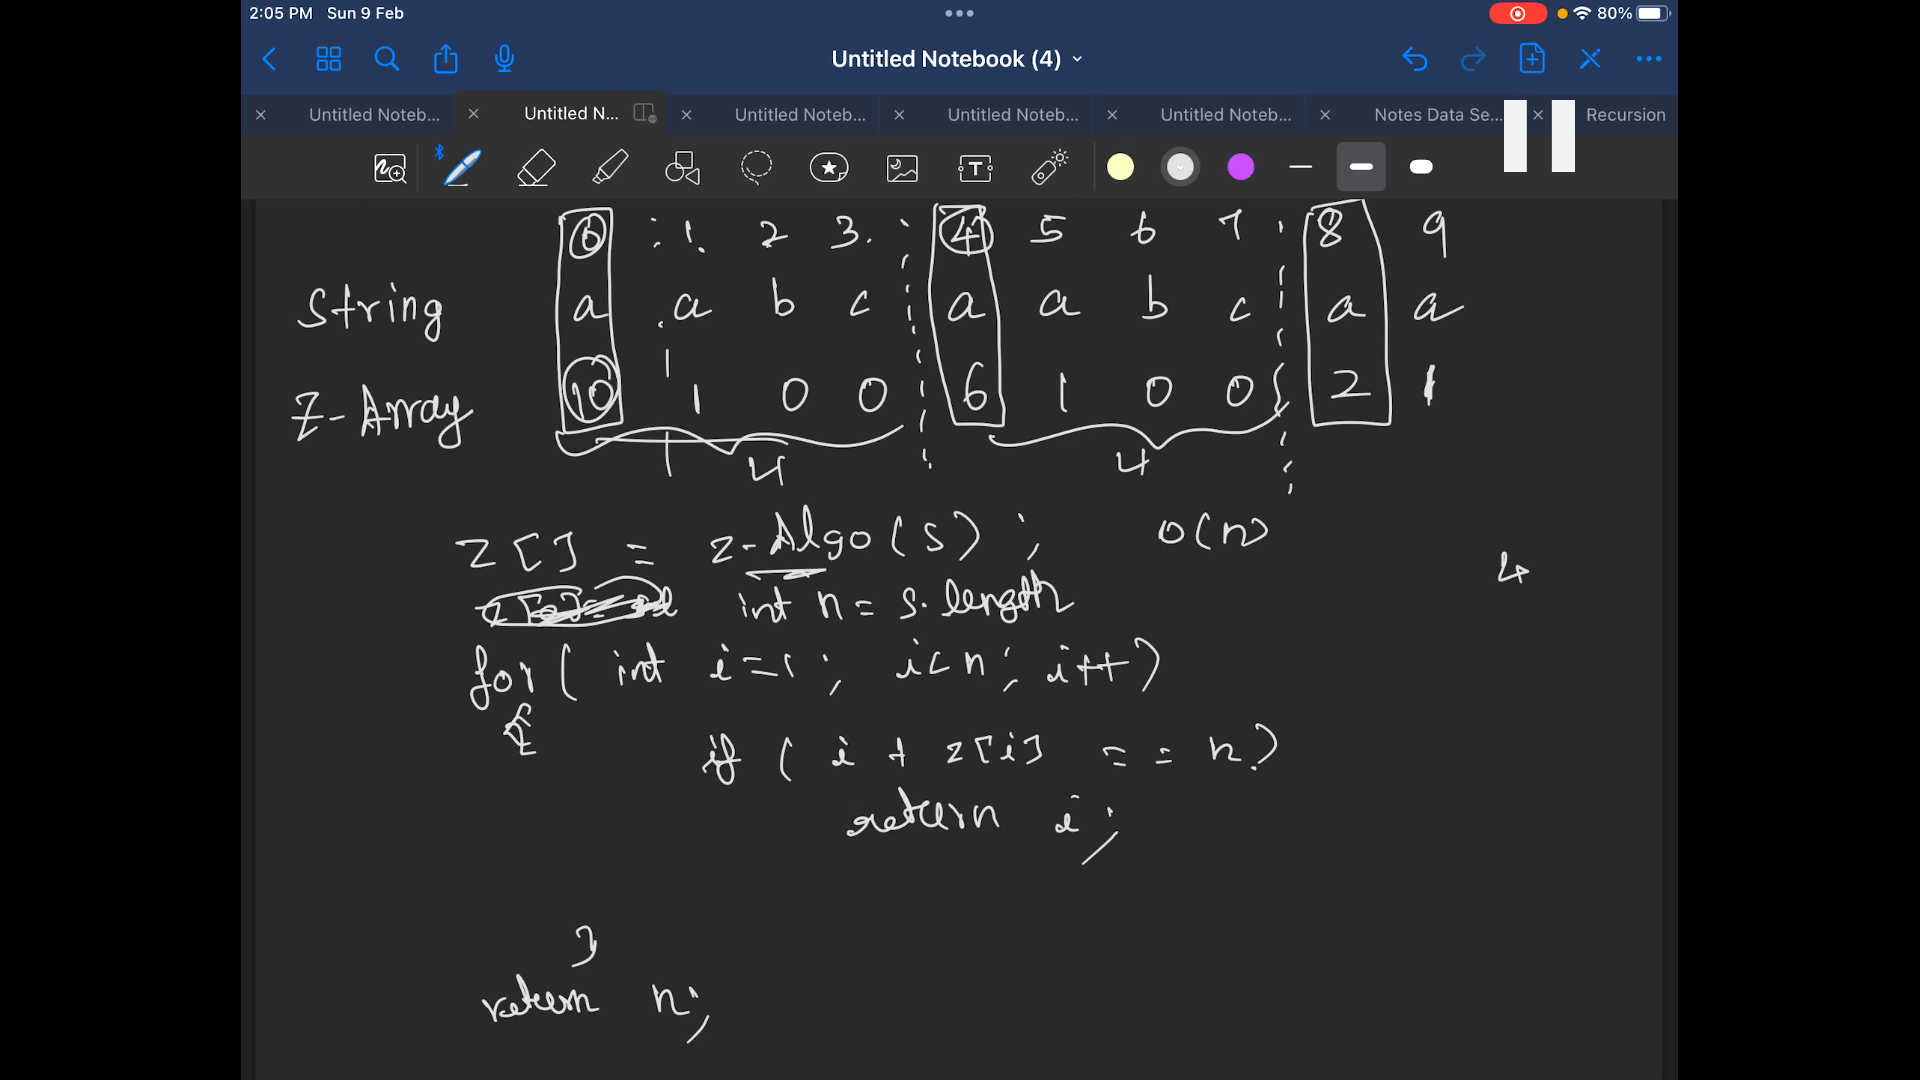 2:05 PM Sun 9 Feb 80%
Untitled Notebook (4)
Untitled Noteb... Untitled N... Untitled Noteb... Untitled Noteb... Untitled Noteb... Notes Data Se... Recursion
0 1 2 3 4 5 6 7 8 9
String a a b c a a b c a a
Z-Array 10 1 0 0 6 1 0 0 2 1
4 4
Z[] = z-Algo(s); O(n)
4
int n = s.length
for( int i=1; i<n; i++)
{
if ( i + z[i] == n)
return i;
}
return n;